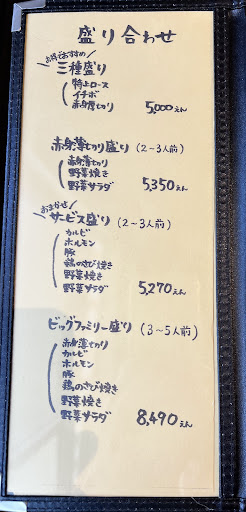 盛り合わせ
お得でおすすめ
三種盛り
特上ロース
イチボ
赤身厚切り 5,000えん
赤身薄切り盛り (2~3人前)
赤身薄切り
野菜焼き
野菜サラダ 5,350えん
おまかせ
サービス盛り (2~3人前)
カルビ
ホルモン
豚
鶏のさび焼き
野菜焼き
野菜サラダ 5,270えん
ビッグファミリー盛り (3~5人前)
赤身薄切り
カルビ
ホルモン
豚
鶏のさび焼き
野菜焼き
野菜サラダ 8,490えん